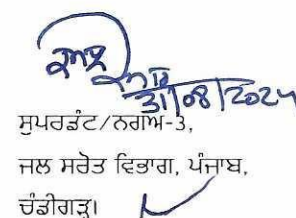 31/08/2024
ਸੁਪਰਡੰਟ/ਨਗਅ-3,
ਜਲ ਸਰੋਤ ਵਿਭਾਗ, ਪੰਜਾਬ,
ਚੰਡੀਗੜ੍ਹ।